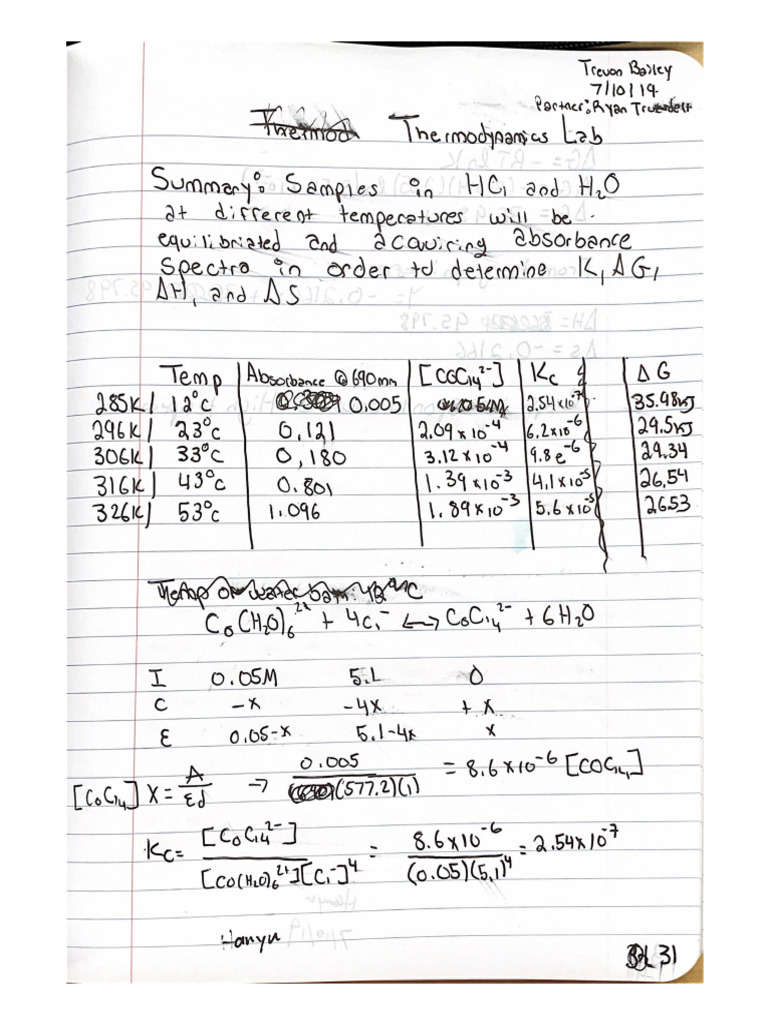 Trevon Bailey
7/10/19
Partner: Ryan
Thermod Thermodynamics Lab
Summary: Samples in HCl and H2O
at different temperatures will be
equilibriated and acquiring absorbance
Spectra in order to determine K, ΔG,
ΔH, and ΔS
Temp | Absorbance @ 690nm | [CoCl4^2-] | Kc | ΔG
285K | 12°C | 0.005 | | 2.54x10^-7 | 35.98kJ
296K | 23°C | 0.121 | 2.09 x 10^-4 | 6.2x10^-6 | 29.5kJ
306K | 33°C | 0,180 | 3.12 x 10^-4 | 9.8e^-6 | 29.34
316K | 43°C | 0.801 | 1.39 x10^-3 | 4.1x10^-5 | 26,54
326K | 53°C | 1.096 | 1.89 x 10^-3 | 5.6 x10^-5 | 26.53
Co(H2O)6^2+ + 4Cl^- ↔ CoCl4^2- + 6H2O
I 0.05M 5.1 0
C -x -4x + x
E 0.05-x 5.1-4x x
[CoCl4] X = A/εd → 0.005/(577.2)(1) = 8.6x10^-6 [COCl4]
Kc = [CoCl4^2-]/[CO(H2O)6^2+][Cl^-]^4 = 8.6x10^-6/(0.05)(5,1)^4 = 2.54x10^-7
Hanyu
31